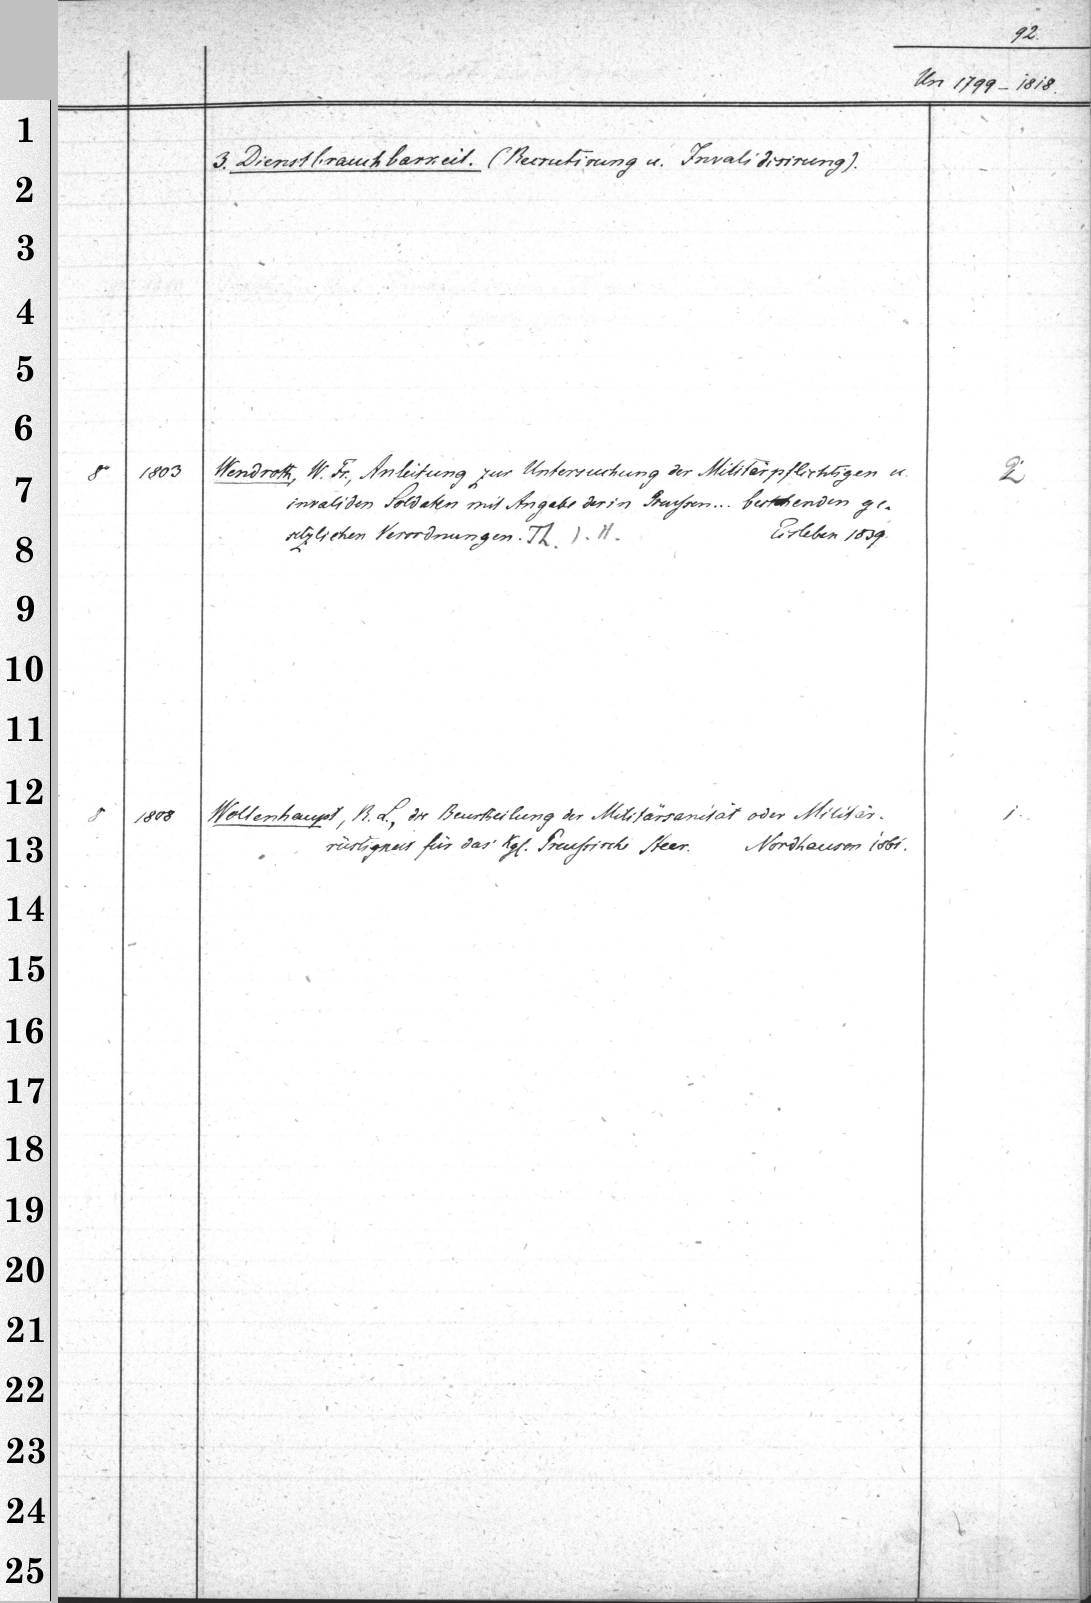 92.
Un 1799-1818.
1
3. Dienstbrauchbarkeit. (Recrutirung u. Invalidisirung).
2
3
4
5
6
8° 1803 Wendroth, W. Fr., Anleitung zur Untersuchung der Militärpflichtigen u. 2
7
invaliden Soldaten mit Angabe der in Preussen... bestehenden ge-
setzlichen Verordnungen. Th. I. II. Eisleben 1839.
8
9
10
11
12
8 1808 Wollenhaupt, R. L., die Beurtheilung der Militärsanität oder Militär- 1
rüstigkeit für das Kgl. Preußische Heer. Nordhausen 1861.
13
14
15
16
17
18
19
20
21
22
23
24
25